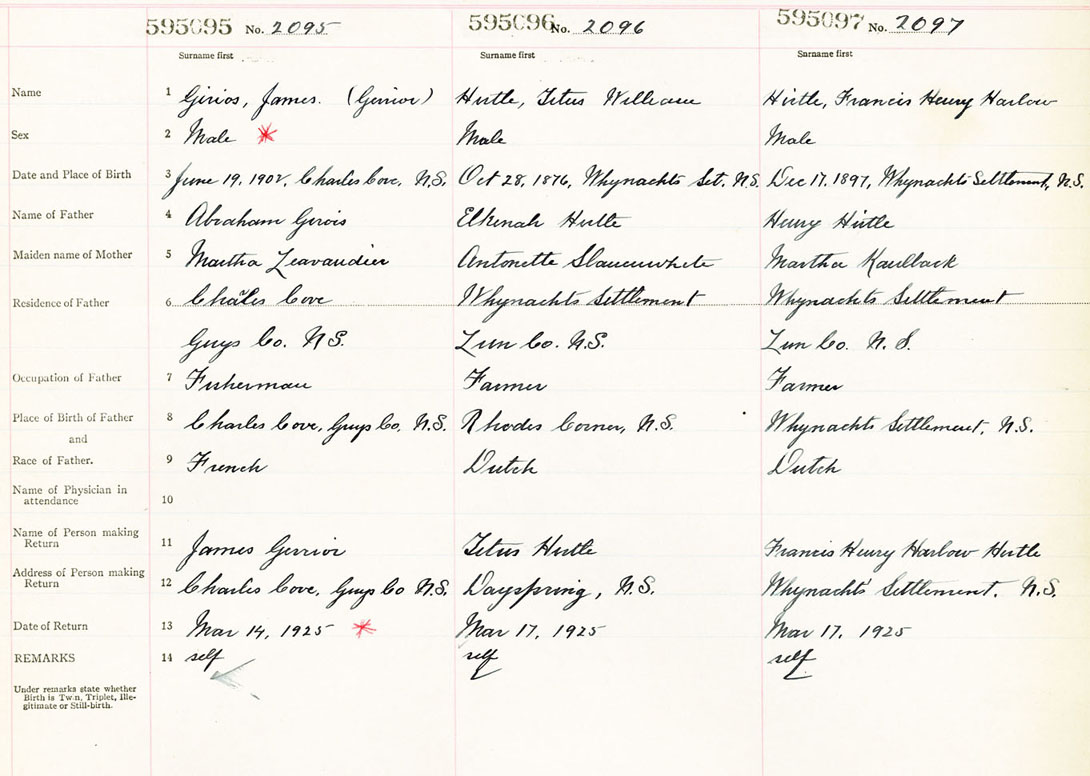 595095 No. 2095 595096 No. 2096 595097 No. 2097
Surname first Surname first Surname first
Name 1 Girios, James. (Gerrior) Hirtle, Titus William Hirtle, Francis Henry Harlow
Sex 2 Male Male Male
Date and Place of Birth 3 June 19, 1902, Charles Cove, N.S. Oct 28, 1876, Whynachts Set. N.S. Dec 17, 1897, Whynachts Settlement, N.S.
Name of Father 4 Abraham Gerois Elkenah Hirtle Henry Hirtle
Maiden name of Mother 5 Martha Leavaudier Antonette Slauenwhite Martha Kaulback
Residence of Father 6 Charles Cove Whynachts Settlement Whynachts Settlement
Guys Co. N.S. Lun Co. N.S. Lun Co. N.S.
Occupation of Father 7 Fisherman Farmer Farmer
Place of Birth of Father 8 Charles Cove, Guys Co, N.S. Rhodes Corner, N.S. Whynachts Settlement, N.S.
and
Race of Father. 9 French Dutch Dutch
Name of Physician in
attendance 10
Name of Person making
Return 11 James Gerrior Titus Hirtle Francis Henry Harlow Hirtle
Address of Person making
Return 12 Charles Cove, Guys Co N.S. Dayspring, N.S. Whynachts Settlement, N.S.
Date of Return 13 Mar 14, 1925 Mar 17, 1925 Mar 17, 1925
REMARKS 14 self self self
Under remarks state whether
Birth is Twin, Triplet, Ille-
gitimate or Still-birth.